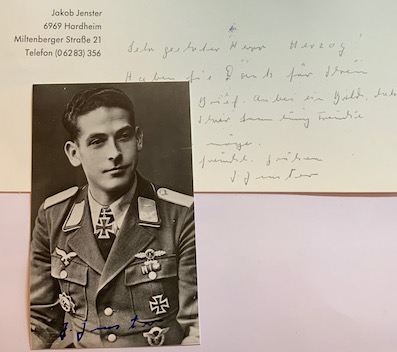 Jakob Jenster
6969 Hardheim
Miltenberger Straße 21
Telefon (0 62 83) 356
Sehr geehrter Herr Herzog!
Haben Sie Dank für Ihren
Brief. Anbei ein Bild, das
Ihrer Sammlung Freude
möge.
freundl. Grüßen
J. Jenster
J. Jenster